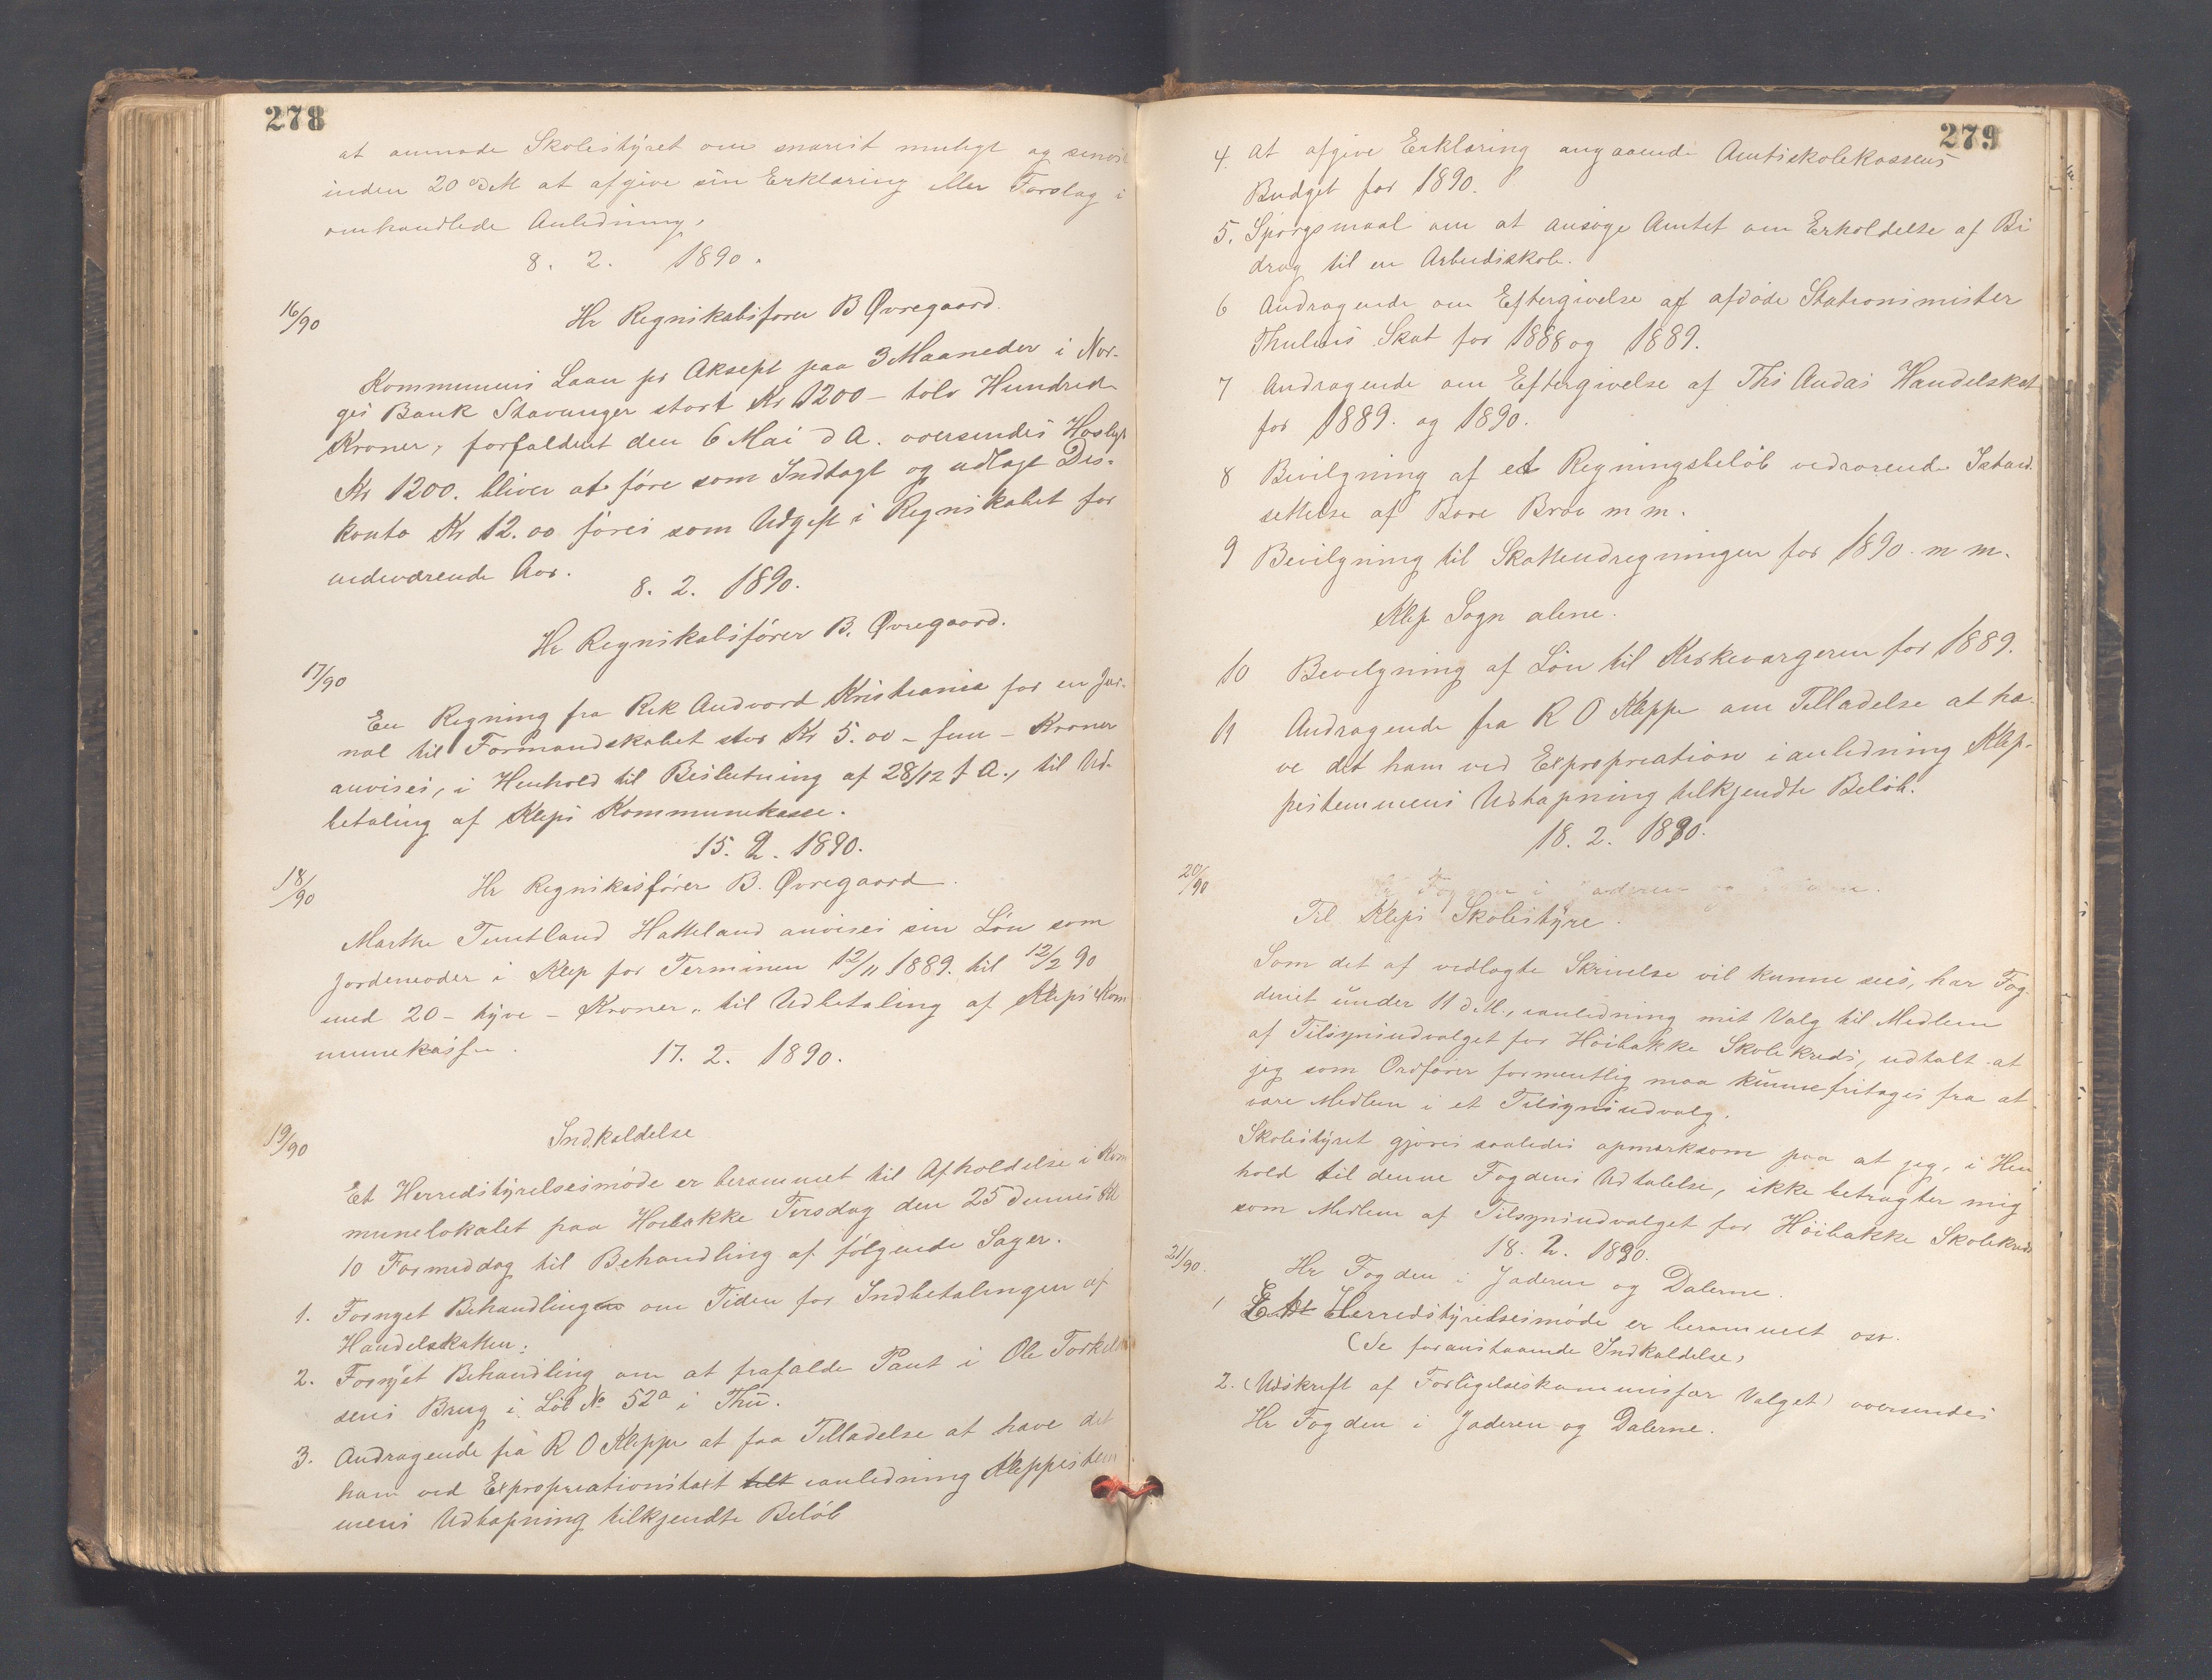 278
at anmode Skolestyret om snarest muligt og senest
inden 20 d M at afgive sin Erklæring eller Forslag i
omhandlede Anledning.
8. 2. 1890.
16/90
Hr Regnskabsfører B Øvregaard.
Kommunens Laan pr Aksept paa 3 Maaneder i Nor-
ges Bank Stavanger stort Kr 1200 - tolv Hundrede
Kroner, forfaldent den 6 Mai d A. oversendes Hoslagt
Kr 1200. bliver at føre som Indtægt og udlagt Dis-
konto Kr 12.00 føres som Udgift i Regnskabet for
indeværende Aar.
8. 2. 1890.
Hr Regnskabsfører B. Øvregaard.
17/90
En Regning fra Rik Andvord Kristiania for en Jur-
nal til Formandskabet stor Kr 5.00 - fem - Kroner
anvises, i Henhold til Beslutning af 28/12 f A., til Ud-
betaling af Kleps Kommunekasse.
15. 2. 1890.
18/90
Hr Regnskasfører B. Øvregaard.
Marthe Tuntland Hatteland anvises sin Løn som
Jordemoder i Klep for Terminen 12/11 1889. til 12/2 90
med 20 - tyve - Kroner, til Udbetaling af Kleps Kom
munekasse.
17. 2. 1890.
19/90
Indkaldelse
Et Herredstyrelsesmøde er berammet til Afholdelse i Kom
munelokalet paa Høibakke Tirsdag den 25 dennes Kl
10 Formiddag til Behandling af følgende Sager.
1. Fornyet Behandlingen om Tiden for Indbetalingen af
Handelskatten.
2. Fornyet Behandling om at frafalde Pant i Ole Torkild
sens Brug i Løb No 52a i Thu.
3. Andragende fra R O Kleppe at faa Tilladelse at have det
ham ved Expropriationstaxt tilk ianledning Kleppestem
mens Udtapning tilkjendte Beløb
279
4. At afgive Erklæring angaaende Amtsskolekassens
Budget for 1890.
5. Spørgsmaal om at ansøge Amtet om Erholdelse af Bi
drag til en Arbeidsskole.
6 Andragende om Eftergivelse af afdøde Stationsmester
Thulins Skat for 1888 og 1889.
7 Andragende om Eftergivelse af Ths Audas Handelskat
for 1889. og 1890.
8 Bevilgning af et Regningsbeløb vedrørende Istand
settelse af Bore Broe m m.
9 Bevilgning til Skatteudregningen for 1890. m m.
Klep Sogn alene.
10 Bevilgning af Løn til Kirkevergeren for 1889.
11 Andragende fra R O Kleppe om Tilladelse at ha-
ve det ham ved Expropriation i anledning Klep-
pestemmens Udtapning tilkjendte Beløb.
18. 2. 1890.
20/90
Til Kleps Skolestyre.
Som det af vedlagte Skrivelse vil kunne sees, har Fog
deriet under 11 d.M., ianledning mit Valg til Medlem
af Tilsynsudvalget for Høibakke Skolekreds, udtalt at
jeg som Ordfører formentlig maa kunne fritages fra at
være Medlem i et Tilsynsudvalg.
Skolestyret gjøres saaledes opmerksom paa at jeg, i Hen
hold til denne Fogdens Udtalelse, ikke betragter mig
som Medlem af Tilsynsudvalget for Høibakke Skolekreds
18. 2. 1890.
21/90.
Hr Fogden i Jæderen og Dalerne.
1 Et Herredstyrelsesmøde er berammet osv.
(Se foranstaaende Indkaldelse)
2. (Udskrift af Forligelseskommissær Valget) oversendes
Hr Fogden i Jæderen og Dalerne.